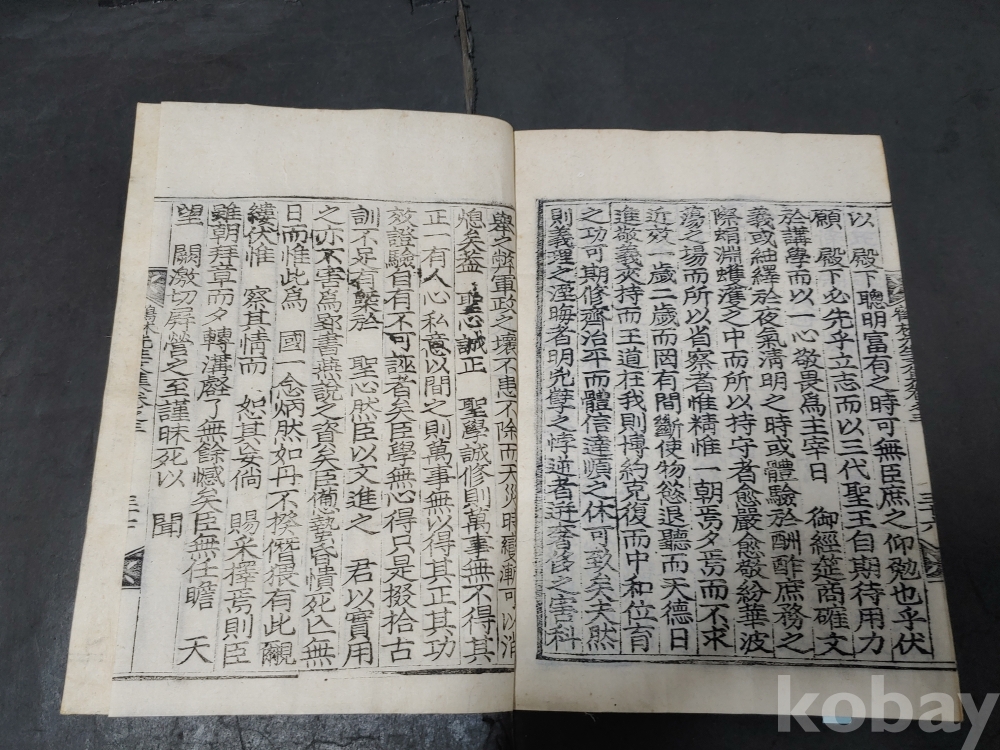 以　殿下聰明富有之時可無臣庶之仰勉也乎伏
願　殿下必先乎立志而以三代聖王自期待用力
於講學而以一心敬畏爲主宰日　御經筵商確文
義或紬繹於夜氣淸明之時或體驗於酬酢庶務之
際絹淵蠖濩之中而所以持守者愈嚴愈敬紛華波
蕩之場而所以省察者惟精惟一朝焉夕焉而不求
近效一歲二歲而罔有間斷使物慾退聽而天德日
進敬義夾持而王道在我則博約克復而中和位育
之功可期修齊治平而體信達順之休可致矣夫然
則義理之湮晦者明兇孼之悖逆者迸奢侈之害科
擧之弊軍政之壞不患不除而天災時變漸可以消
熄矣蓋　聖心誠正　聖學誠修則萬事無不得其
正一有人心私意以間之則萬事無以得其正其功
效證驗自有不可誣者矣臣學無心得只是掇拾古
訓不足有槩於　聖心然臣以文進之　君以實用
之亦不害爲郢書燕說之資矣臣備蟄昏憒死亡無
日而惟此爲　國一念炳然如丹不揆僭猥有此覼
縷伏惟　察其情而　恕其妄倘　賜采擇焉則臣
雖朝拜章而夕轉溝壑了無餘憾矣臣無任瞻　天
望　闕激切屛營之至謹昧死以　聞